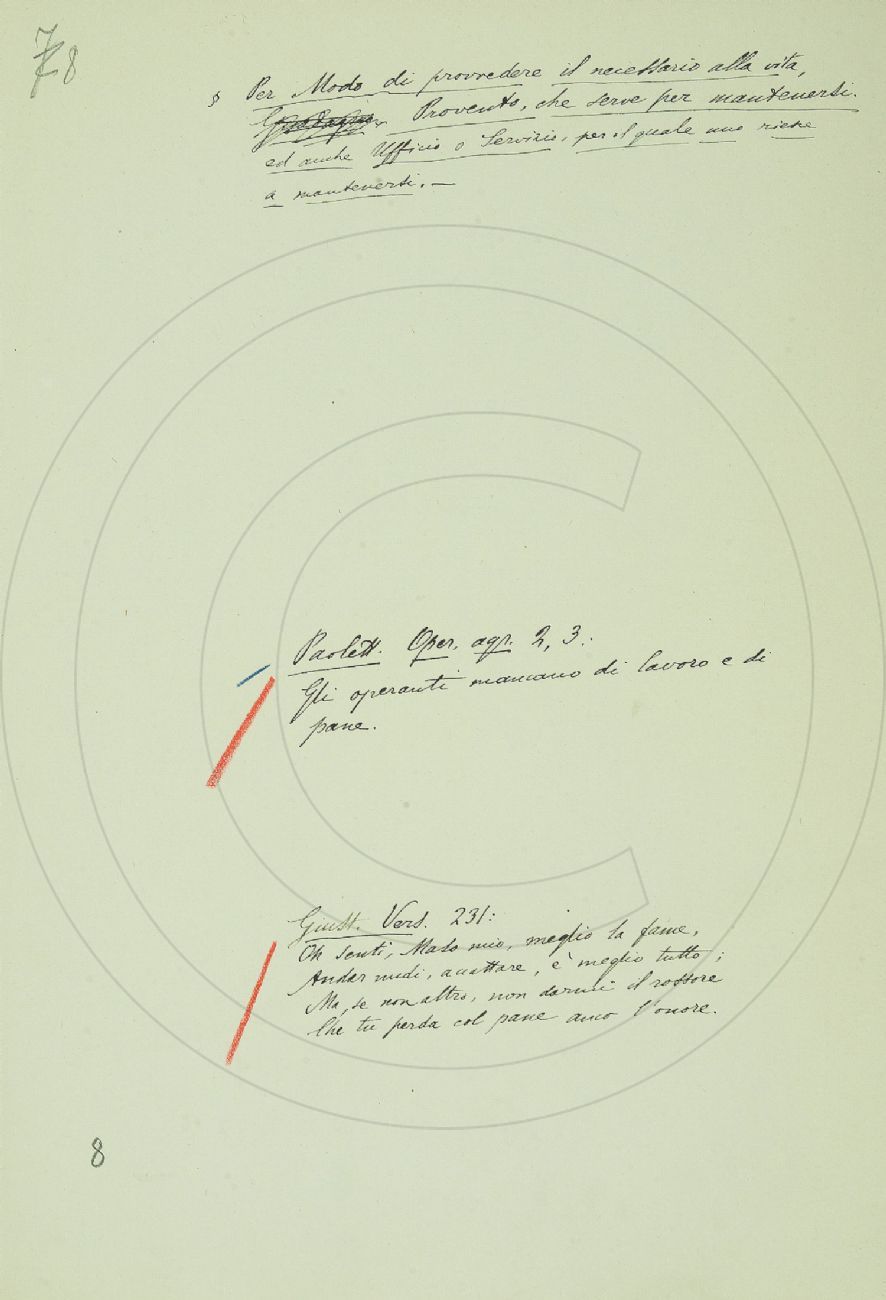 7 8
§ Per Modo di provvedere il necessario alla vita,
Guadagno Provento, che serve per mantenersi.
ed anche Ufficio o Servizio, per il quale uno viene
a mantenersi. —
Paolett. Oper. agr. 2, 3:
Gli operanti mancano di lavoro e di
pane.
Giust. Vers. 231:
Oh senti, Maso mio, meglio la fame,
Andar nudi, accattare, è meglio tutto;
Ma, se non altro, non darmi il rossore
Che tu perda col pane anco l'onore.
8